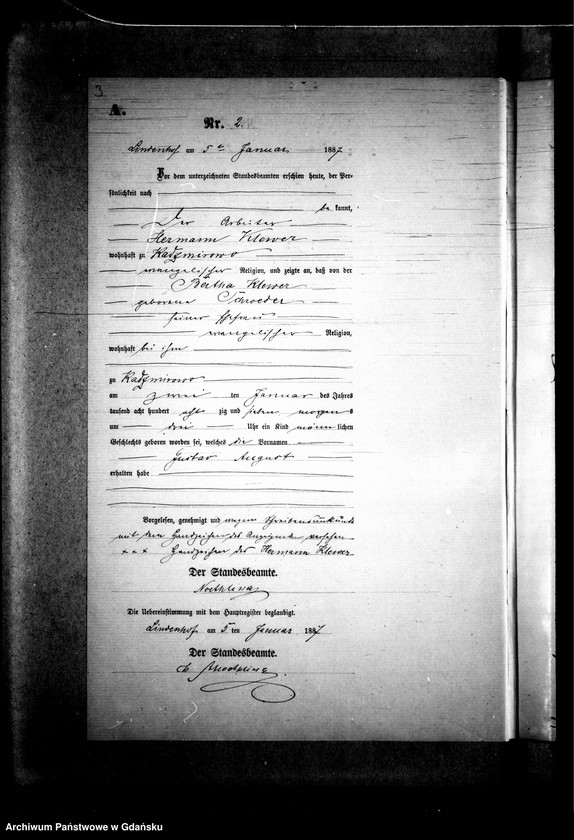 3
A.
Nr. 2.
Lindenhof am 5ten Januar 1887
Vor dem unterzeichneten Standesbeamten erschien heute, der Per-
sönlichkeit nach
be kannt,
Der Arbeiter
Hermann Klewer
wohnhaft zu Kadzmirowo
evangelischer Religion, und zeigte an, daß von der
Bertha Klewer
geborene Schroeder
seiner Ehefrau
evangelischer Religion,
wohnhaft bei ihm
zu Kadzmirowo
am zwei ten Januar des Jahres
tausend acht hundert acht zig und sieben morgens
um drei Uhr ein Kind männ lichen
Geschlechts geboren worden sei, welches die Vornamen
Gustav August
erhalten habe
Vorgelesen, genehmigt und wegen Schreibensunkunde
mit dem Handzeichen des Anzeigenden versehen
+ + + Handzeichen des Hermann Klewer
Der Standesbeamte.
Die Uebereinstimmung mit dem Hauptregister beglaubigt.
Lindenhof am 5 ten Januar 1887
Der Standesbeamte.
Archiwum Państwowe w Gdańsku